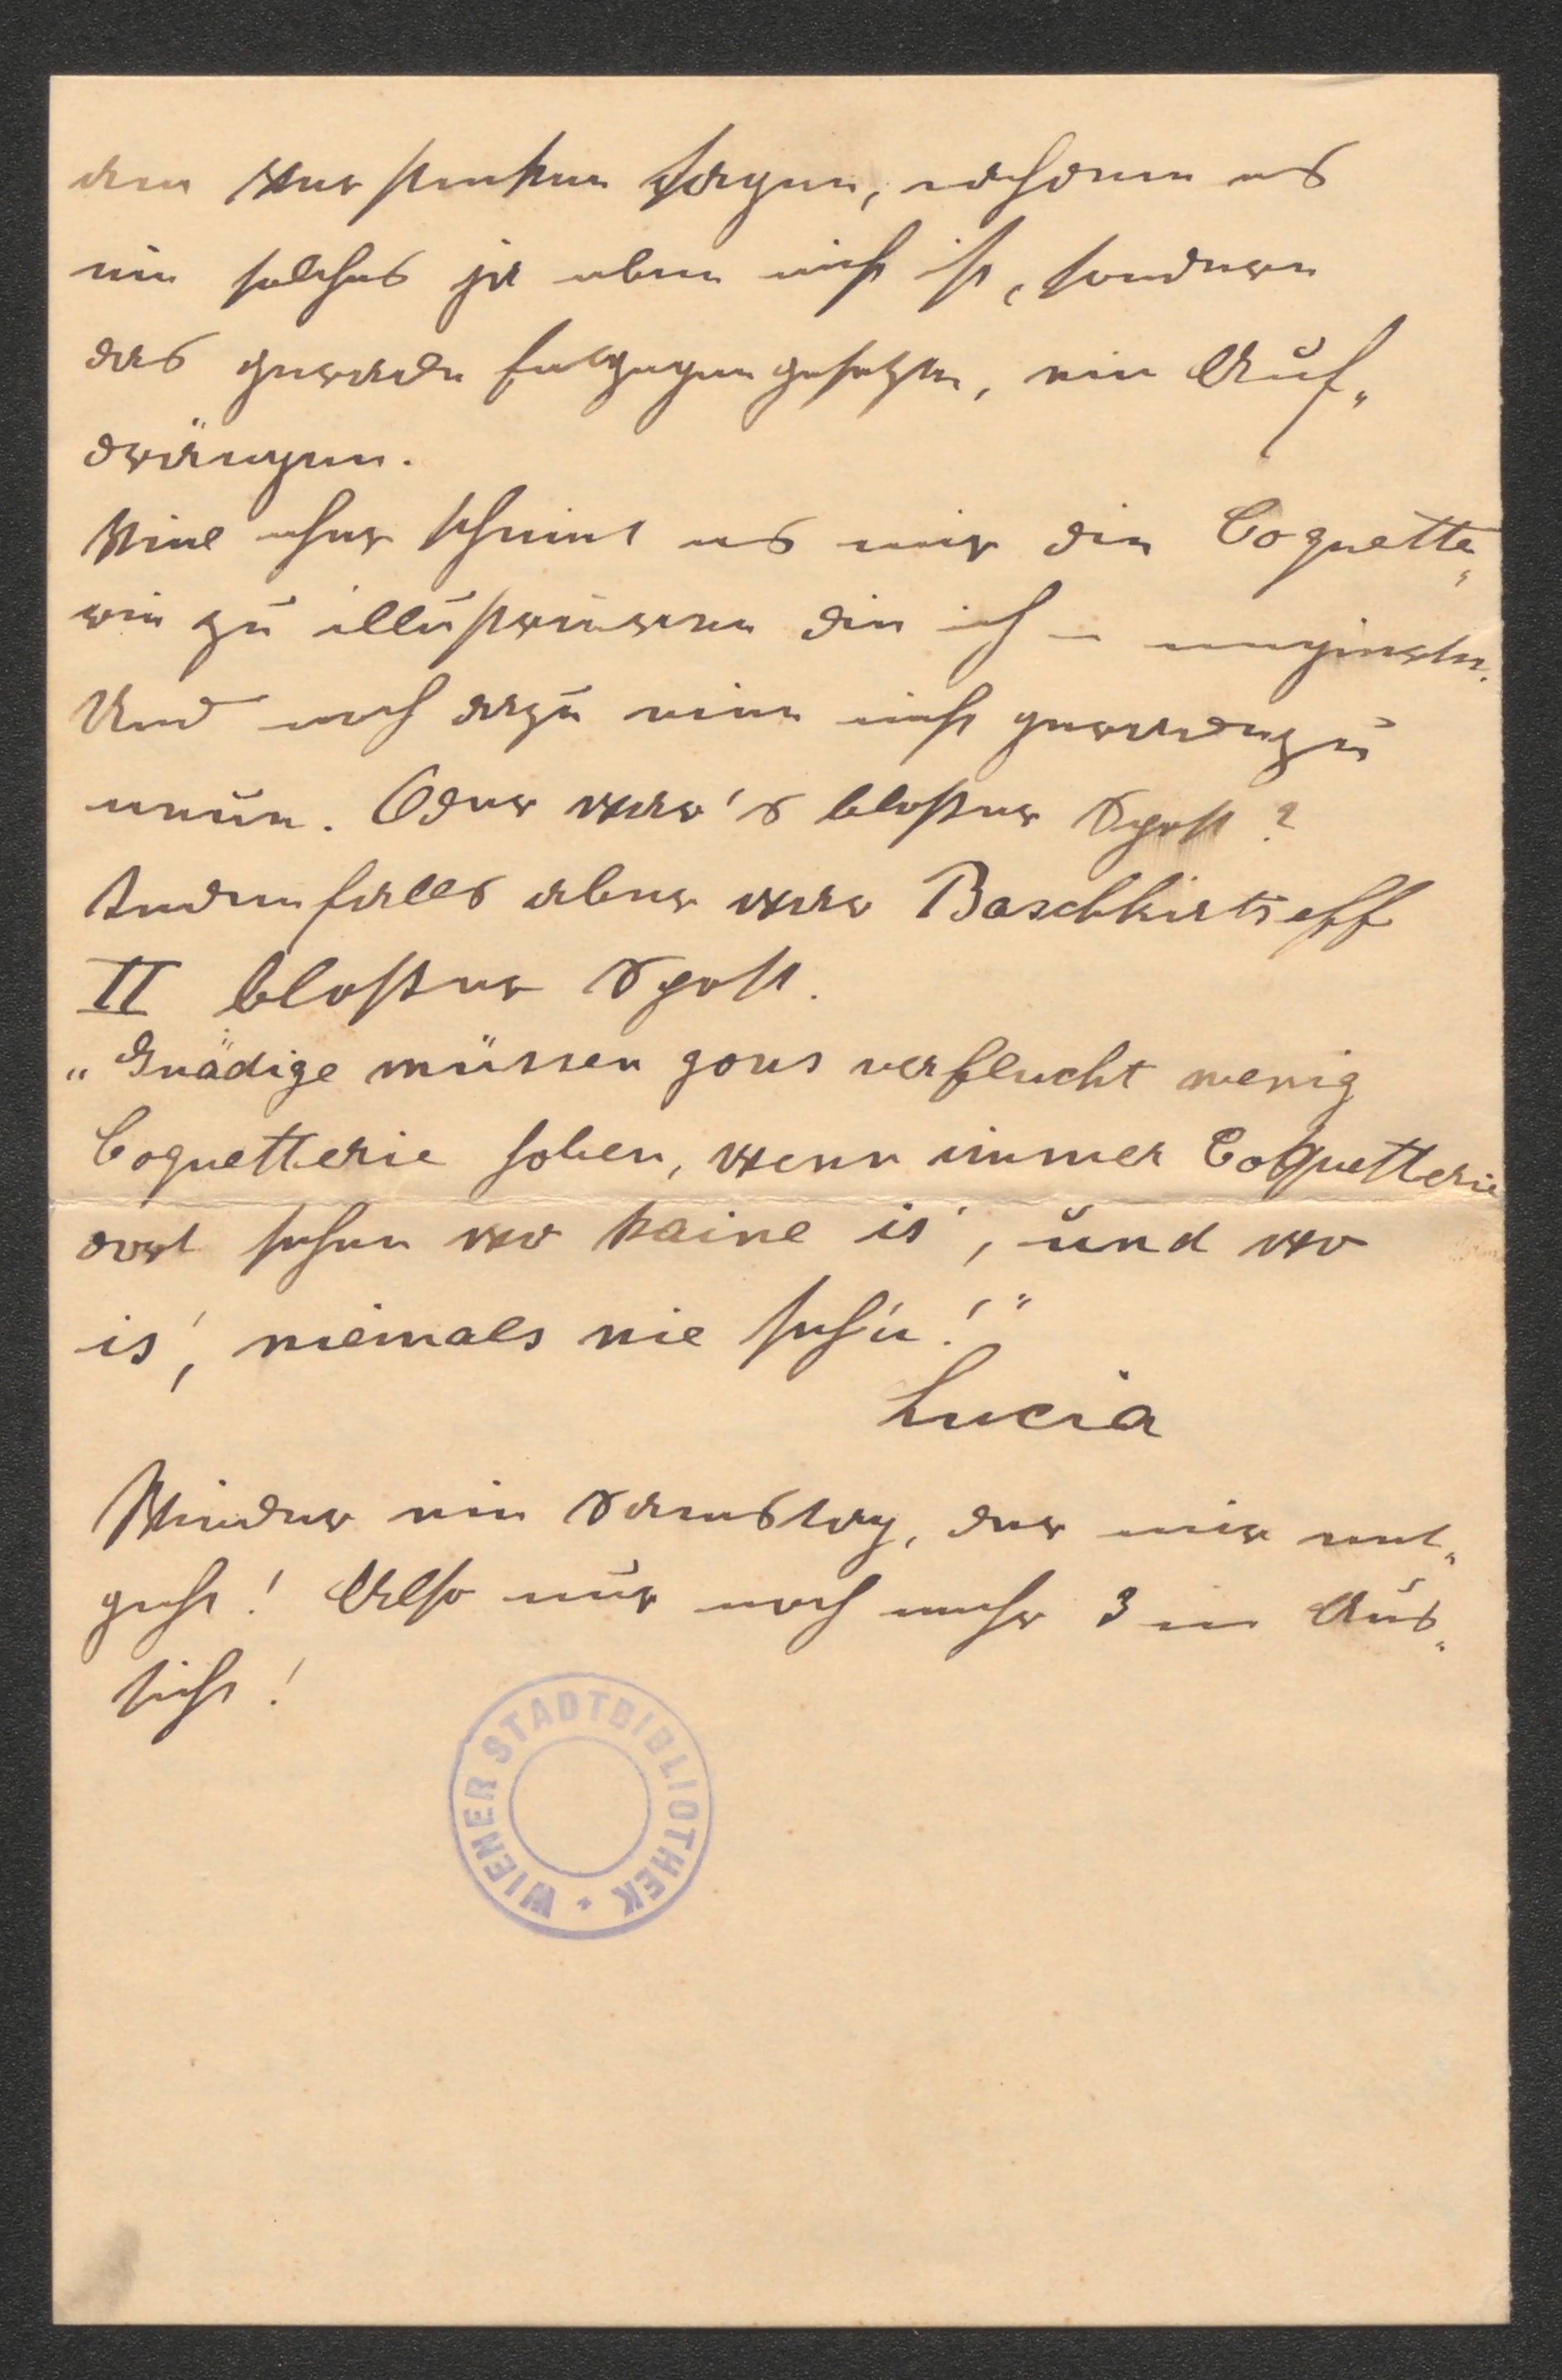 dem Verstecken sagen, nachdem es
ein solches ja eben nicht ist, sondern
das gerade Entgegengesetzte, ein Auf„
drängen.
Viel eher scheint es mir die Coquette„
rie zu illustrieren die ich –
Und noch dazu eine nicht geradezu
neue. Oder war's bloßer Spott?
Jedenfalls aber war Baschkirtseff
II bloßer Spott.
„Gnädige müssen gons verflucht wenig
Coquetterie hoben, wenn immer Coquetterie
dort sehen wo kaine is', und wo
is', niemals nie seh'n!“
Lucia
Wieder ein Samstag, der mir ent„
geht! Also nur noch mehr 3 in Aus„
sicht!
WIENER STADTBIBLIOTHEK *